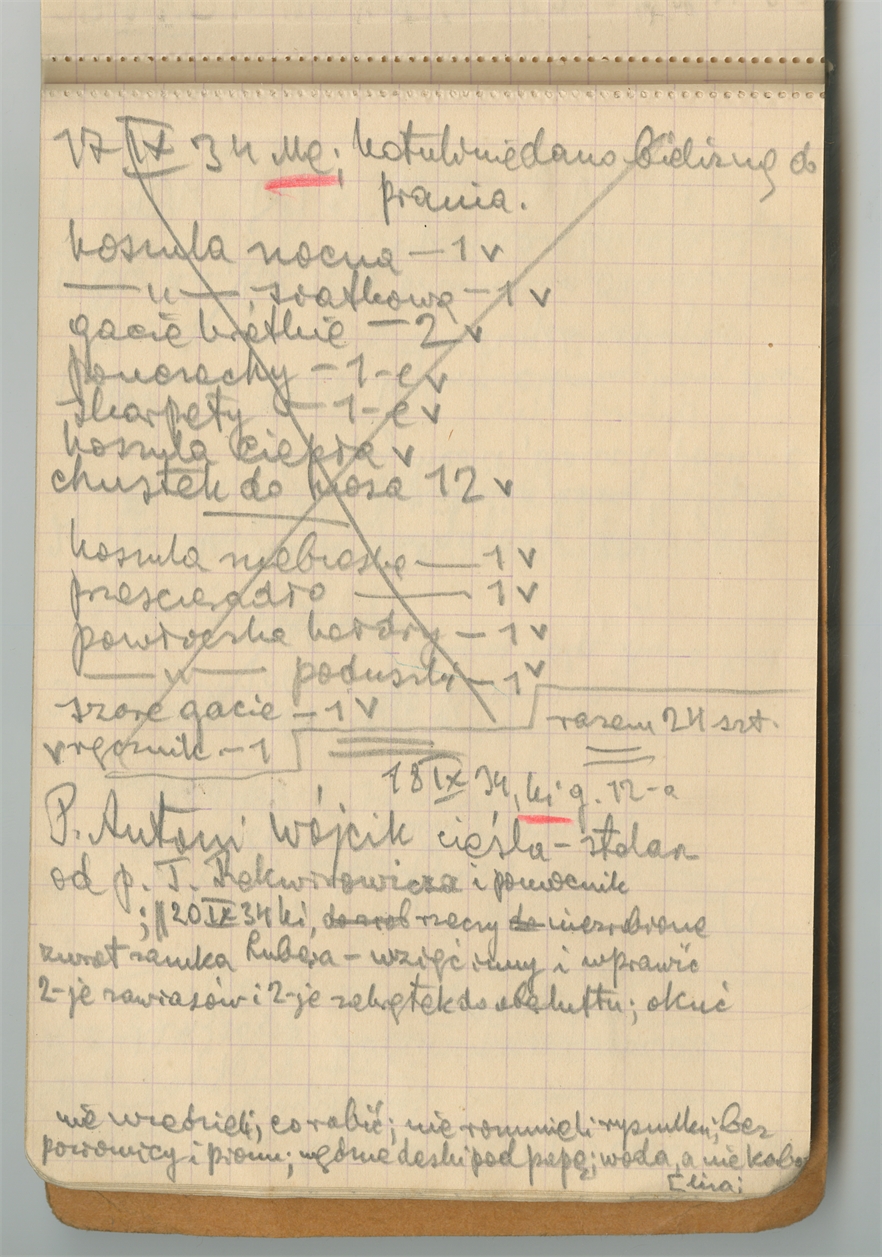 17 IX 34 Mę; Kotulinię dano bieliznę do
prania.
koszula nocna — 1 v
—— „ —— , siatkowa — 1 v
gacie krótkie — 2 v
ponczochy — 1-e v
skarpety — 1-e v
koszula ciepła v
chustek do nosa 12 v
koszula niebieska —— 1 v
prześcieradło —— 1 v
powłoczka kołdry — 1 v
—— „ —— poduszki — 1 v
szare gacie — 1 v
razem 24 szt.
v ręcznik — 1
18 IX 34, ki g. 12-a
P. Antoni Wójcik cieśla-stolarz
od p. T. i pomocnik
; || 20 IX 34 ki, rzeczy niezrobione
zwrot zamka Kubera - wziąć inny i wprawić
2-je zawiasów i 2-je zakrętek do; okuć
nie wiedzieli, co robić; nie rozumieli rysunku; bez
poziomicy i pionu; deski pod papę; woda, a nie